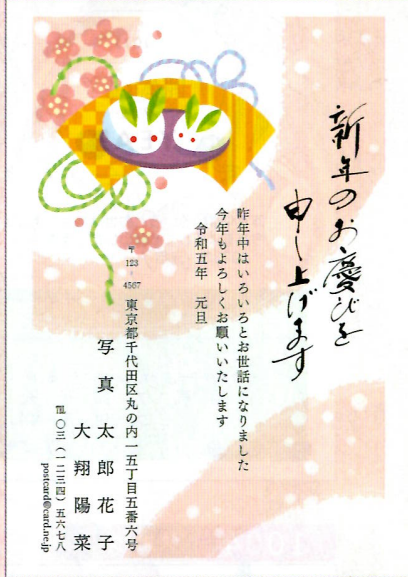 新年のお慶びを
申し上げます
昨年中はいろいろとお世話になりました
今年もよろしくお願いいたします
令和五年　元旦
〒123-4567
東京都千代田区丸の内一五丁目五番六号
写真　太郎花子
大翔陽菜
℡〇三(一二三四)五六七八
postcard@card.ne.jp